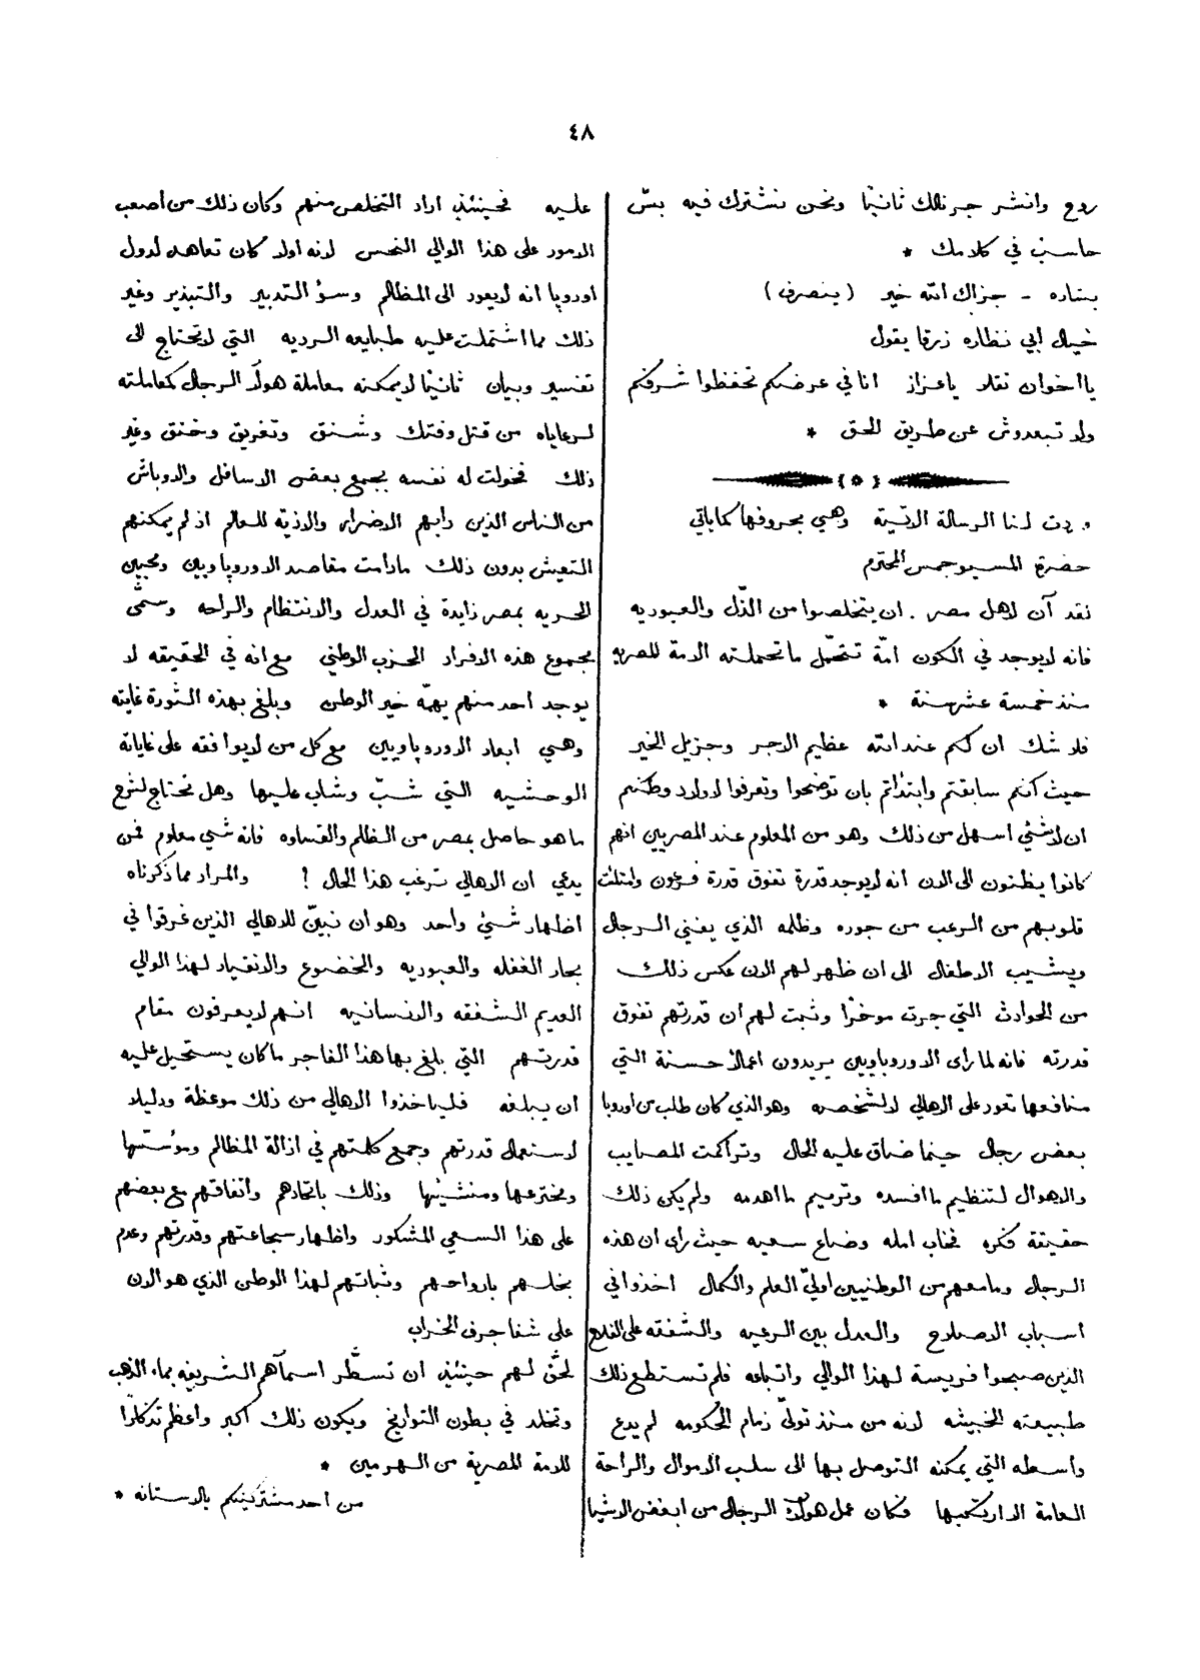 ٤٨
روح وانشر جرنالك ثانيًا ونحن نشترك فيه بسّ
حاسب في كلامك *
بشاره - جزاك الله خير (ينصرف)
خيال ابي نظاره زرقا يقول
يا اخوان نقلا يا عزاز انا في عرضكم تحفظوا شرفكم
ولا تبعدوش عن طريق الحق *
وردت لنا الرسالة الاتية وهي بحروفها كما ياتي
حضرة المسيو جمس المحترم
نقد آن لاهل مصر . ان يتخلصوا من الذّل والعبوديه
فانه لا يوجد في الكون امّة تتحمّل ما تحملته الامة المصريه
منذ خمسة عشر سنة *
فلا شك ان لكم عند الله عظيم الاجر وجزيل الخير
حيث كنتم سابقتم وابتدأتم بان توضحوا وتعرفوا لاولاد وطنكم
ان لا شئي اسهل من ذلك وهو من المعلوم عند المصريين انهم
كانوا يظنون الى الان انه لا يوجد قدرة تفوق قدرة فرعون وامتلئت
قلوبهم من الرعب من جوره وظلمه الذي يفني الرجال
ويشيب الاطفال الى ان ظهر لهم الان عكس ذلك
من الحوادث التي جرت موخرًا وثبت لهم ان قدرتهم تفوق
قدرته فانه لما راى الاوروپاويين يريدون اعمالاً حسنة التي
منافعها تعود على الاهالي لا لشخصه وهو الذي كان طلب من اوروپا
بعض رجال حينما ضاق عليه الحال وتراكمت المصايب
والاهوال لتنظيم ما افسده وترميم ما اهدمه ولم يكن ذلك
حقيقة فكره فخاب امله وضاع سعيه حيث راى ان هذه
الرجال وما معهم من الوطنيين اوليّ العلم والكمال اخذوا في
اسباب الاصلاح والعدل بين الرعيه والشفقه على الفلاح
الذين صبحوا فريسة لهذا الوالي واتباعه فلم تستطع ذلك
طبيعته الخبيثه لانه من منذ تولىّ زمام الحكومه لم يدع
واسطه التي يمكنه التوصل بها الى سلب الاموال والراحة
العامة الا ارتكبها فكان عمل هولآء الرجال من ابغض الاشيا
عليه فحينئذٍ اراد التخلص منهم وكان ذلك من اصعب
الامور على هذا الوالي النحس لانه اولا كان تعاهد لدول
اوروپا انه لا يعود الى المظالم وسؤ التدبير والتبذير وغير
ذلك مما اشتملت عليه طبايعه الرديه التي لا تحتاج الى
تفسير وبيان ثانيًا لا يمكنه معاملة هولآء الرجال كمعاملته
لرعاياه من قتل وفتك وشنق وتغريق وخنق وغير
ذلك فخولت له نفسه بجمع بعض الاسافل والاوباش
من الناس الذين دابهم الاضرار والاذية للعالم اذ لم يمكنهم
التعيش بدون ذلك ما دامت مقاصد الاوروپاويين ومحبين
الحريه بمصر زايدة في العدل والانتظام والراحه وسمّى
مجموع هذه الافراد الحزب الوطني مع انه في الحقيقه لا
يوجد احد منهم يهمّه خير الوطن وبلغ بهذه الثورة غايته
وهي ابعاد الاوروپاويين مع كل من لا يوافقه على غاياته
الوحشيه التي شبّ وشاب عليها وهل تحتاج لشرح
ما هو حاصل بمصر من الظلم والقساوه فانه شي معلوم فمن
يدعي ان الاهالي ترغب هذا الحال ! والمراد مما ذكرناه
اظهار شيئ واحد وهو ان نبيّن للاهالي الذين غرقوا في
بحار الغفله والعبوديه والخضوع والانقياد لهذا الوالي
العديم الشفقه والانسانيه انهم لا يعرفون مقام
قدرتهم التي بلغ بها هذا الفاجر ما كان يستحيل عليه
ان يبلغه فلياخذوا الاهالي من ذلك موعظة ودليلا
لاستعمال قدرتهم وجمع كلمتهم في ازالة المظالم ومؤسّسها
ومخترعها ومنشيئها وذلك باتحادهم واتفاقهم مع بعضهم
على هذا السعي المشكور واظهار سجاعتهم وقدرتهم وعدم
بخلهم بارواحهم وثباتهم لهذا الوطن الذي هو الان
على شفا جرف الخراب
لحقَّ لهم حينئذٍ ان تسطَّر اسمآهم الشريفه بماء الذهب
وتخلد في بطون التواريخ ويكون ذلك اكبر واعظم تذكارًا
للامة المصرية من الهرمين *
من احد مشتركينكم بالاستانه *